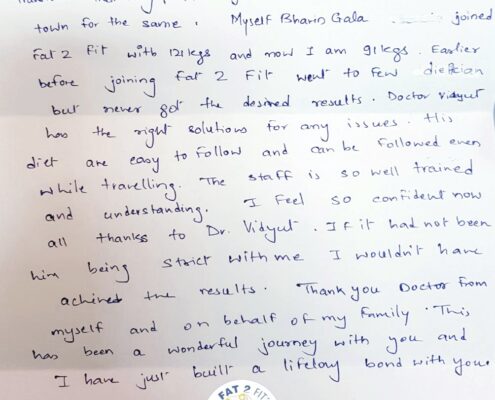 town for the same. Myself Bhavin Gala joined
Fat 2 Fit with 121 kgs and now I am 91 kgs. Earlier
before joining Fat 2 Fit went to few dietician
but never got the desired results. Doctor Vidyut
has the right solutions for any issues. His
diet are easy to follow and can be followed even
while travelling. The staff is so well trained
and understanding. I feel so confident now
all thanks to Dr. Vidyut. If it had not been
him being strict with me I wouldn't have
achived the results. Thank you Doctor from
myself and on behalf of my family. This
has been a wonderful journey with you and
I have just built a lifelong bond with you.
FAT 2 FIT